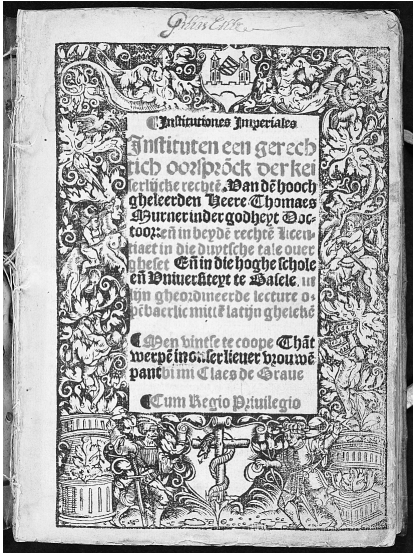 ¶Institutiones Imperiales
Instituten een gerech
tich oorsprõck der kei
serlijcke rechtẽ. Van dẽ hooch
gheleerden Heere Thomaes
Murner in der godheyt Doc-
toor: eñ in beydẽ rechtẽ licen
tiaet in die duytsche tale ouer
gheset Eñ in die hoghe schole
eñ Vniuersiteyt te Basele, in
sijn gheordineerde lecture o-
pẽbaerlic mittẽ latijn ghelekẽ
¶Men vintse te coope Thãt
werpẽ in onser lieuer vrouwẽ
pant bi mi Claes de Graue
¶Cum Regio Priuilegio